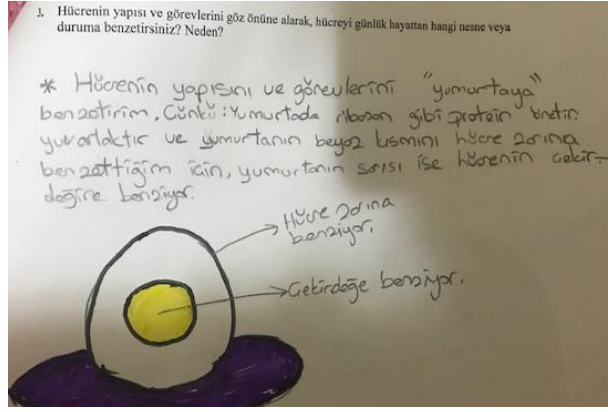 3. Hücrenin yapısı ve görevlerini göz önüne alarak, hücreyi günlük hayattan hangi nesne veya
duruma benzetirsiniz? Neden?
* Hücrenin yapısını ve görevlerini "yumurtaya"
benzetirim. Çünkü: Yumurtada ribozon gibi protein üretir,
yuvarlaktır ve yumurtanın beyaz kısmını hücre zarına
benzettiğim için, yumurtanın sarısı ise hücrenin çekir-
değine benziyor.
Hücre zarına
benziyor.
Çekirdeğe benziyor.